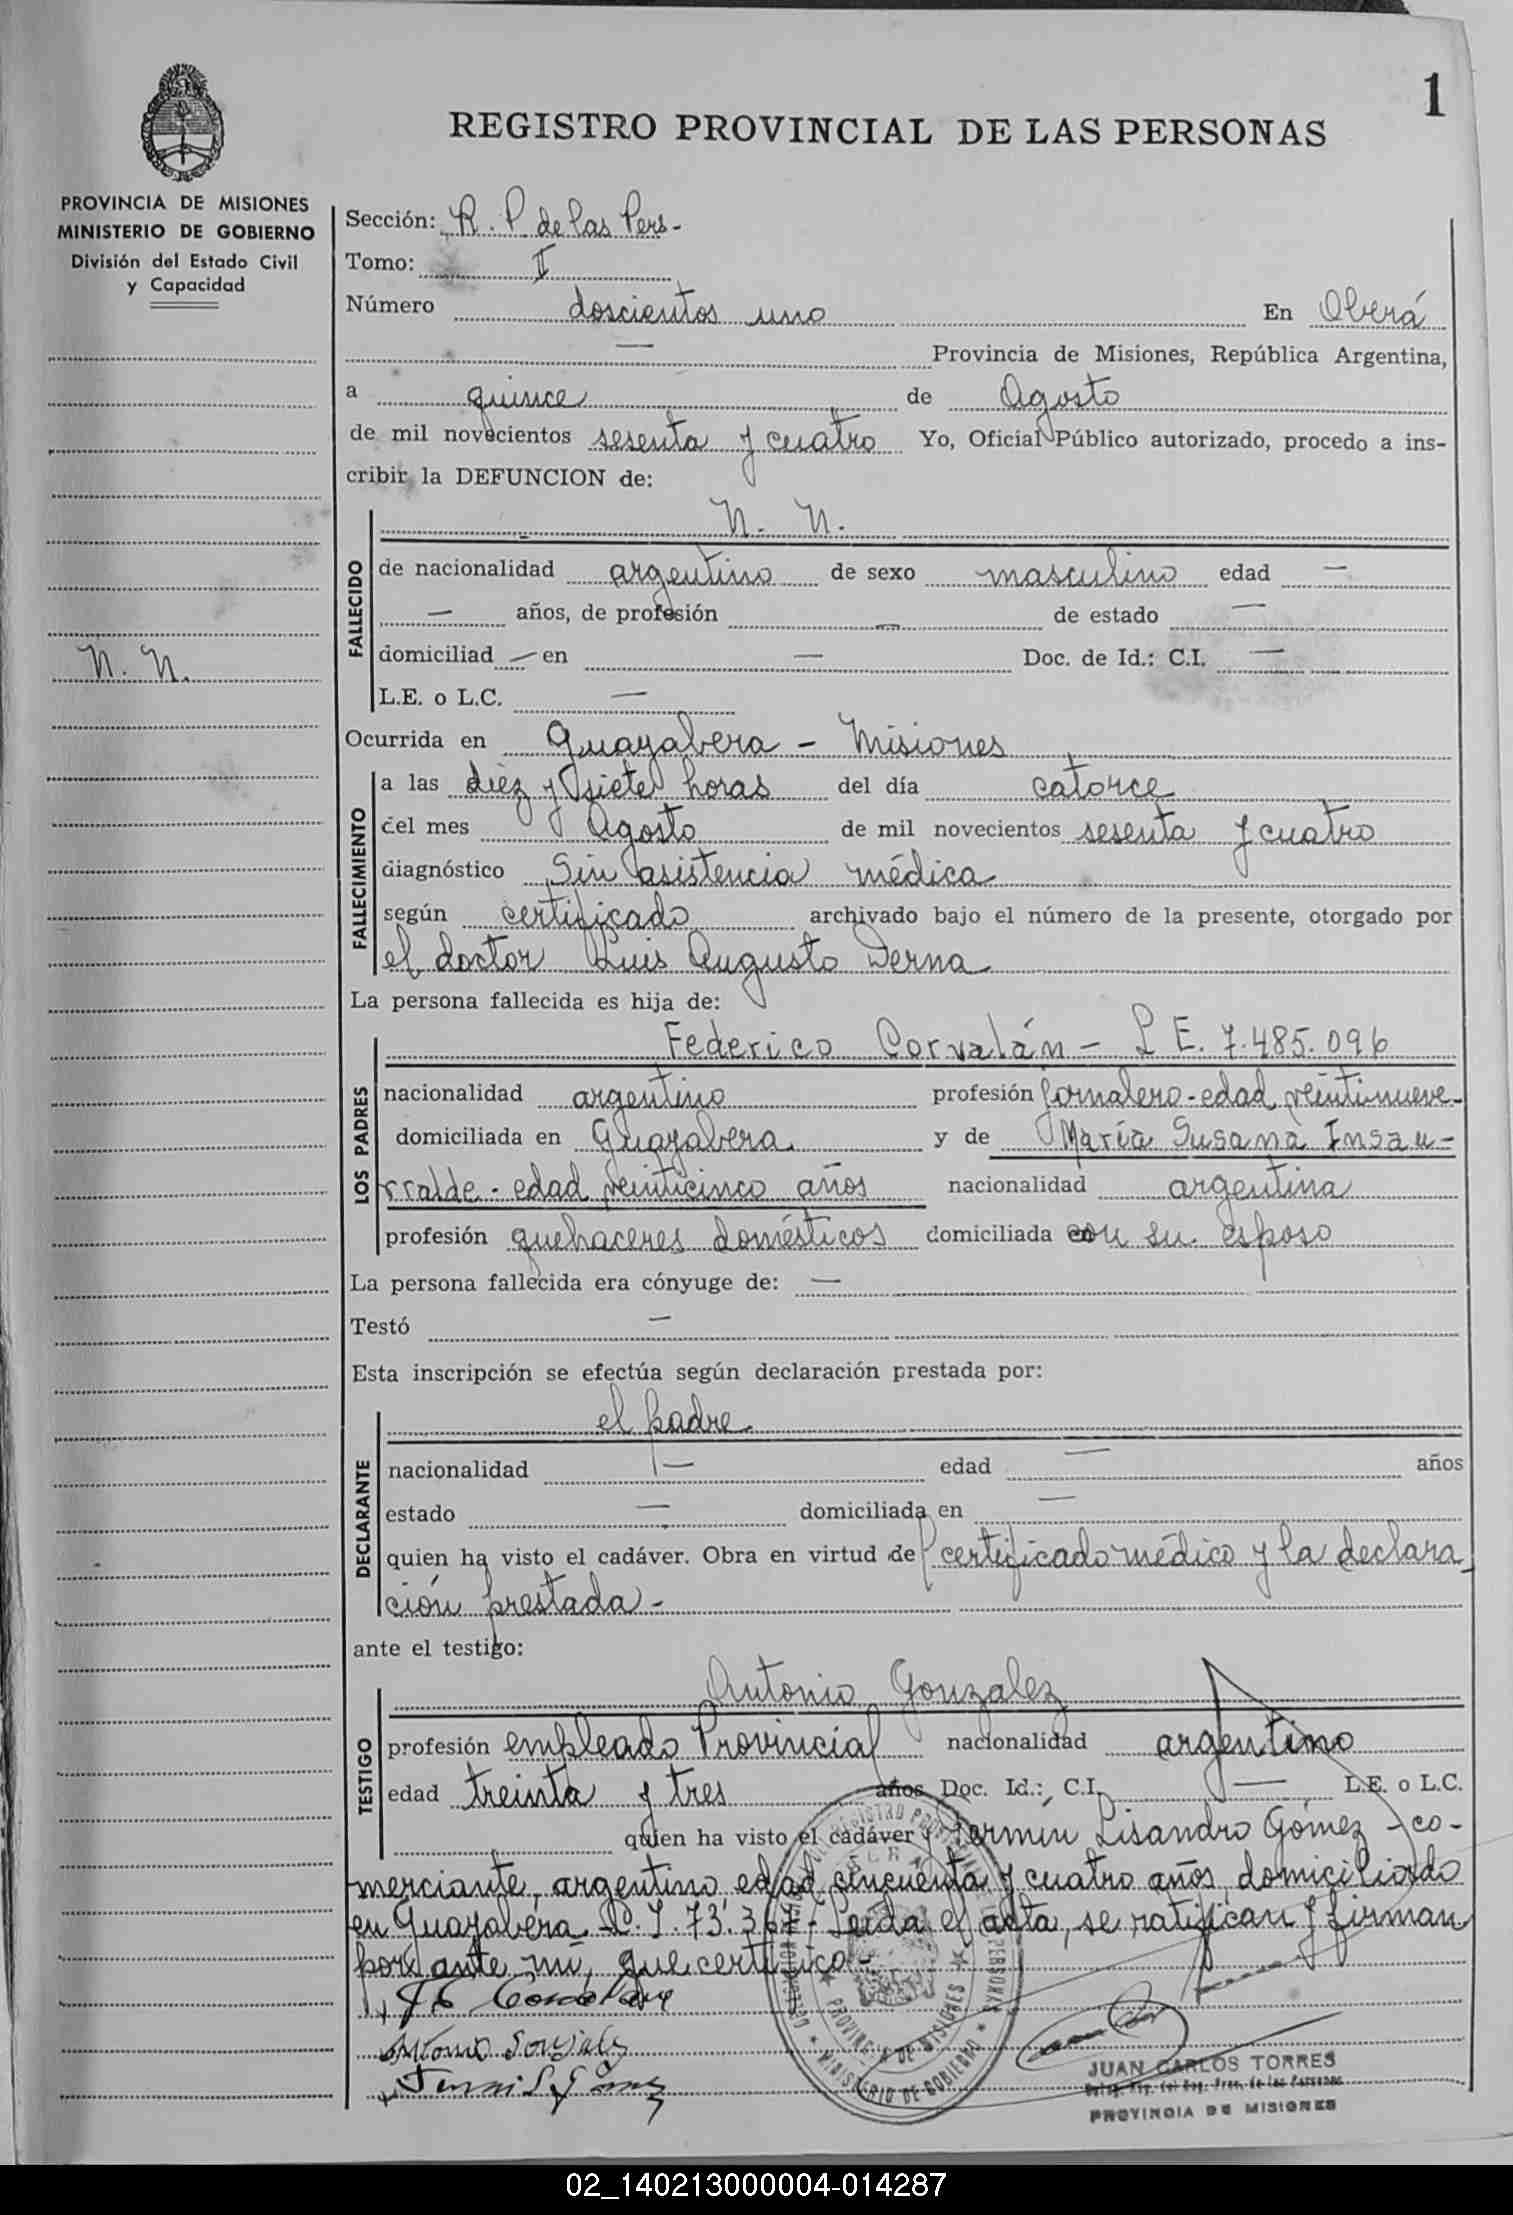 1
REGISTRO PROVINCIAL DE LAS PERSONAS
PROVINCIA DE MISIONES
MINISTERIO DE GOBIERNO
División del Estado Civil
y Capacidad
N. N.
Sección: R. P de las Pers-
Tomo: I
Número doscientos uno En Oberá
— Provincia de Misiones, República Argentina,
a quince de Agosto
de mil novecientos sesenta y cuatro Yo, Oficial Público autorizado, procedo a ins-
cribir la DEFUNCION de:
N. N.
FALLECIDO
de nacionalidad argentino de sexo masculino edad —
— años, de profesión — de estado —
domiciliad — en — Doc. de Id.: C.I. —
L.E. o L.C. —
Ocurrida en Guayabera - Misiones
FALLECIMIENTO
a las diez y siete horas del día catorce
del mes Agosto de mil novecientos sesenta y cuatro
diagnóstico Sin asistencia médica
según certificado archivado bajo el número de la presente, otorgado por
el doctor Luis Augusto Derna
La persona fallecida es hija de:
LOS PADRES
Federico Corvalán - L E. 7.485.096
nacionalidad argentino profesión jornalero - edad veintinueve-
domiciliada en Guayabera y de María Susana Insau-
rralde - edad veinticinco años nacionalidad argentina
profesión quehaceres domésticos domiciliada con su esposo
La persona fallecida era cónyuge de: —
Testó —
Esta inscripción se efectúa según declaración prestada por:
DECLARANTE
el padre
nacionalidad — edad — años
estado — domiciliada en —
quien ha visto el cadáver. Obra en virtud de certificado médico y la declara
ción prestada -
ante el testigo:
TESTIGO
Antonio Gonzalez
profesión empleado Provincial nacionalidad argentino
edad treinta y tres años Doc. Id.: C.I. — L.E. o L.C.
quien ha visto el cadáver y Fermín Lisandro Gómez - co-
merciante, argentino, edad cincuenta y cuatro años, domiciliado
en Guayabera 73.367 - Leída el acta, se ratifican y firman
por ante mí, que certifico -
Antonio Gonzalez
PROVINCIA DE MISIONES
MINISTERIO DE GOBIERNO
JUAN CARLOS TORRES
PROVINCIA DE MISIONES
02_140213000004-014287